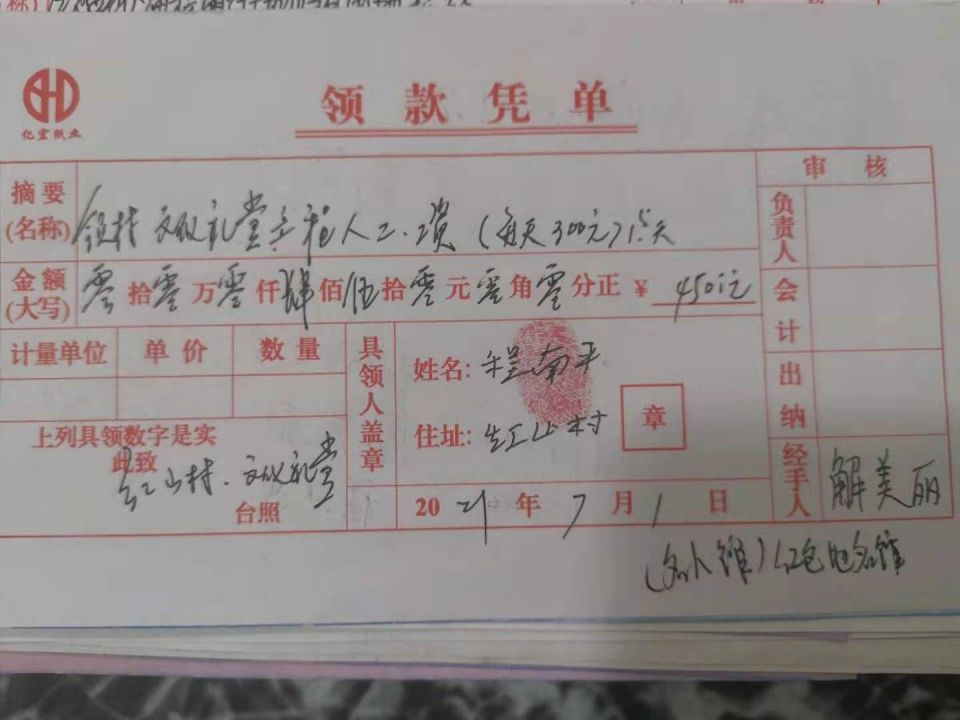 亿宏纸业
领款凭单
审核
摘要(名称) 领村文化礼堂工程人工资(每天300元)1.5天
负责人
金额(大写) 零拾零万零仟肆佰伍拾零元零角零分正 ¥ 450元
会计
计量单位 单价 数量
具领人盖章
姓名: 程南平
住址: 红山村
章
出纳
上列具领数字是实
此致
红山村.文化礼堂
台照
2021年7月1日
经手人 解美丽